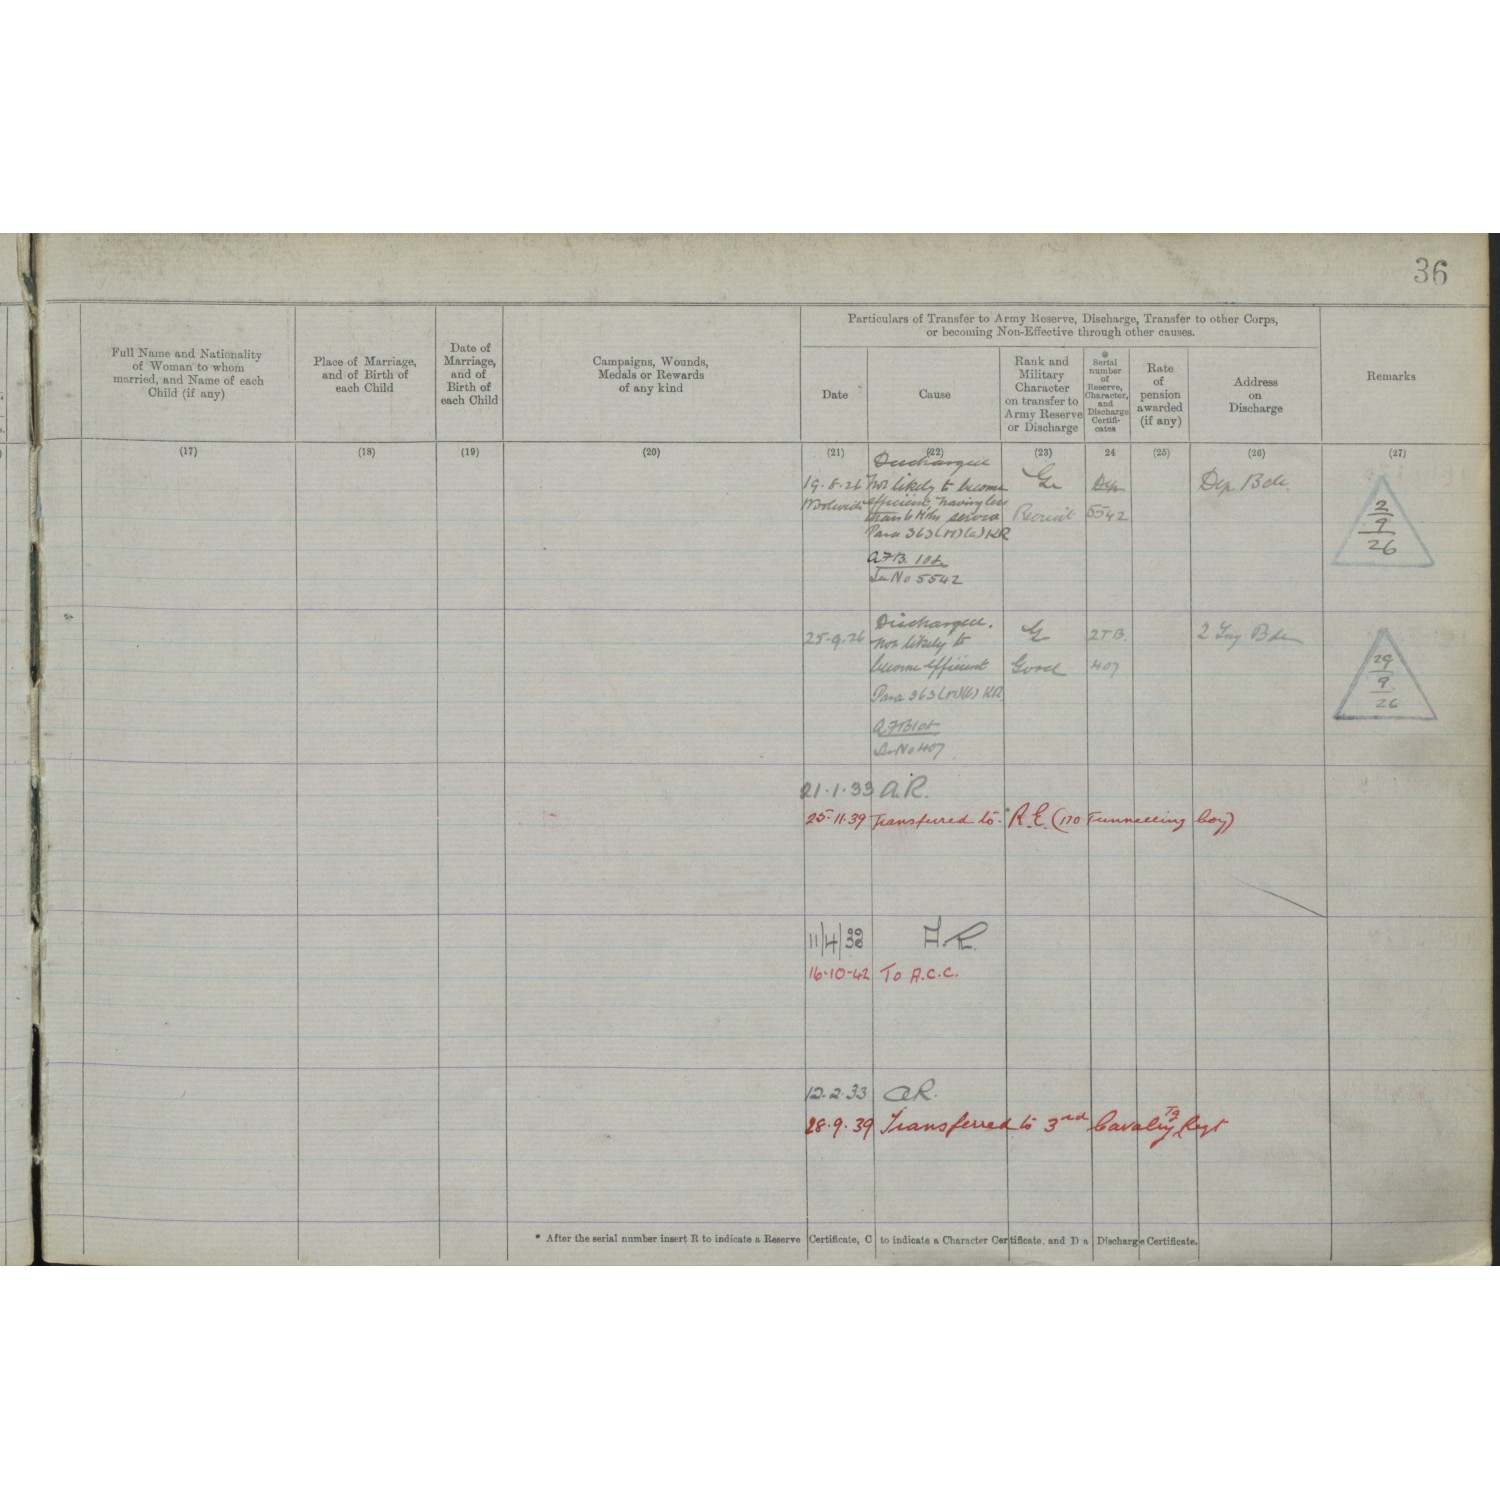 36
Particulars of Transfer to Army Reserve, Discharge, Transfer to other Corps,
or becoming Non-Effective through other causes.
Full Name and Nationality
of Woman to whom
married, and Name of each
Child (if any)
Place of Marriage,
and of Birth of
each Child
Date of
Marriage,
and of
Birth of
each Child
Campaigns, Wounds,
Medals or Rewards
of any kind
Date
Cause
Rank and
Military
Character
on transfer to
Army Reserve
or Discharge
Serial
number
of
Reserve,
Character,
and
Discharge
Certifi-
cates
Rate
of
pension
awarded
(if any)
Address
on
Discharge
Remarks
(17) (18) (19) (20) (21) (22) (23) 24 (25) (26) (27)
Discharged
19.8.26 Not likely to become Gr Dep Dep. Bde.
Woolwich efficient, having less
than 6 Mths service Recruit 5542
Para 363(VI)(a) KR
A.F.B. 108
No 5542
2
9
26
Discharged.
25.9.26 Not likely to Gr 2TB. 2 Trg Bde
become efficient Good 407
Para 363(VI)(b) KR
A.F.B 108
No 407
29
9
26
21.1.33 A.R.
25.11.39 Transferred to R.E. (170 Tunnelling Coy)
11/4/38 A.R.
16-10-42 To A.C.C.
12.2.33 A.R.
28.9.39 Transferred to 3rd Cavalry Tg Regt
* After the serial number insert R to indicate a Reserve Certificate, C to indicate a Character Certificate, and D a Discharge Certificate.